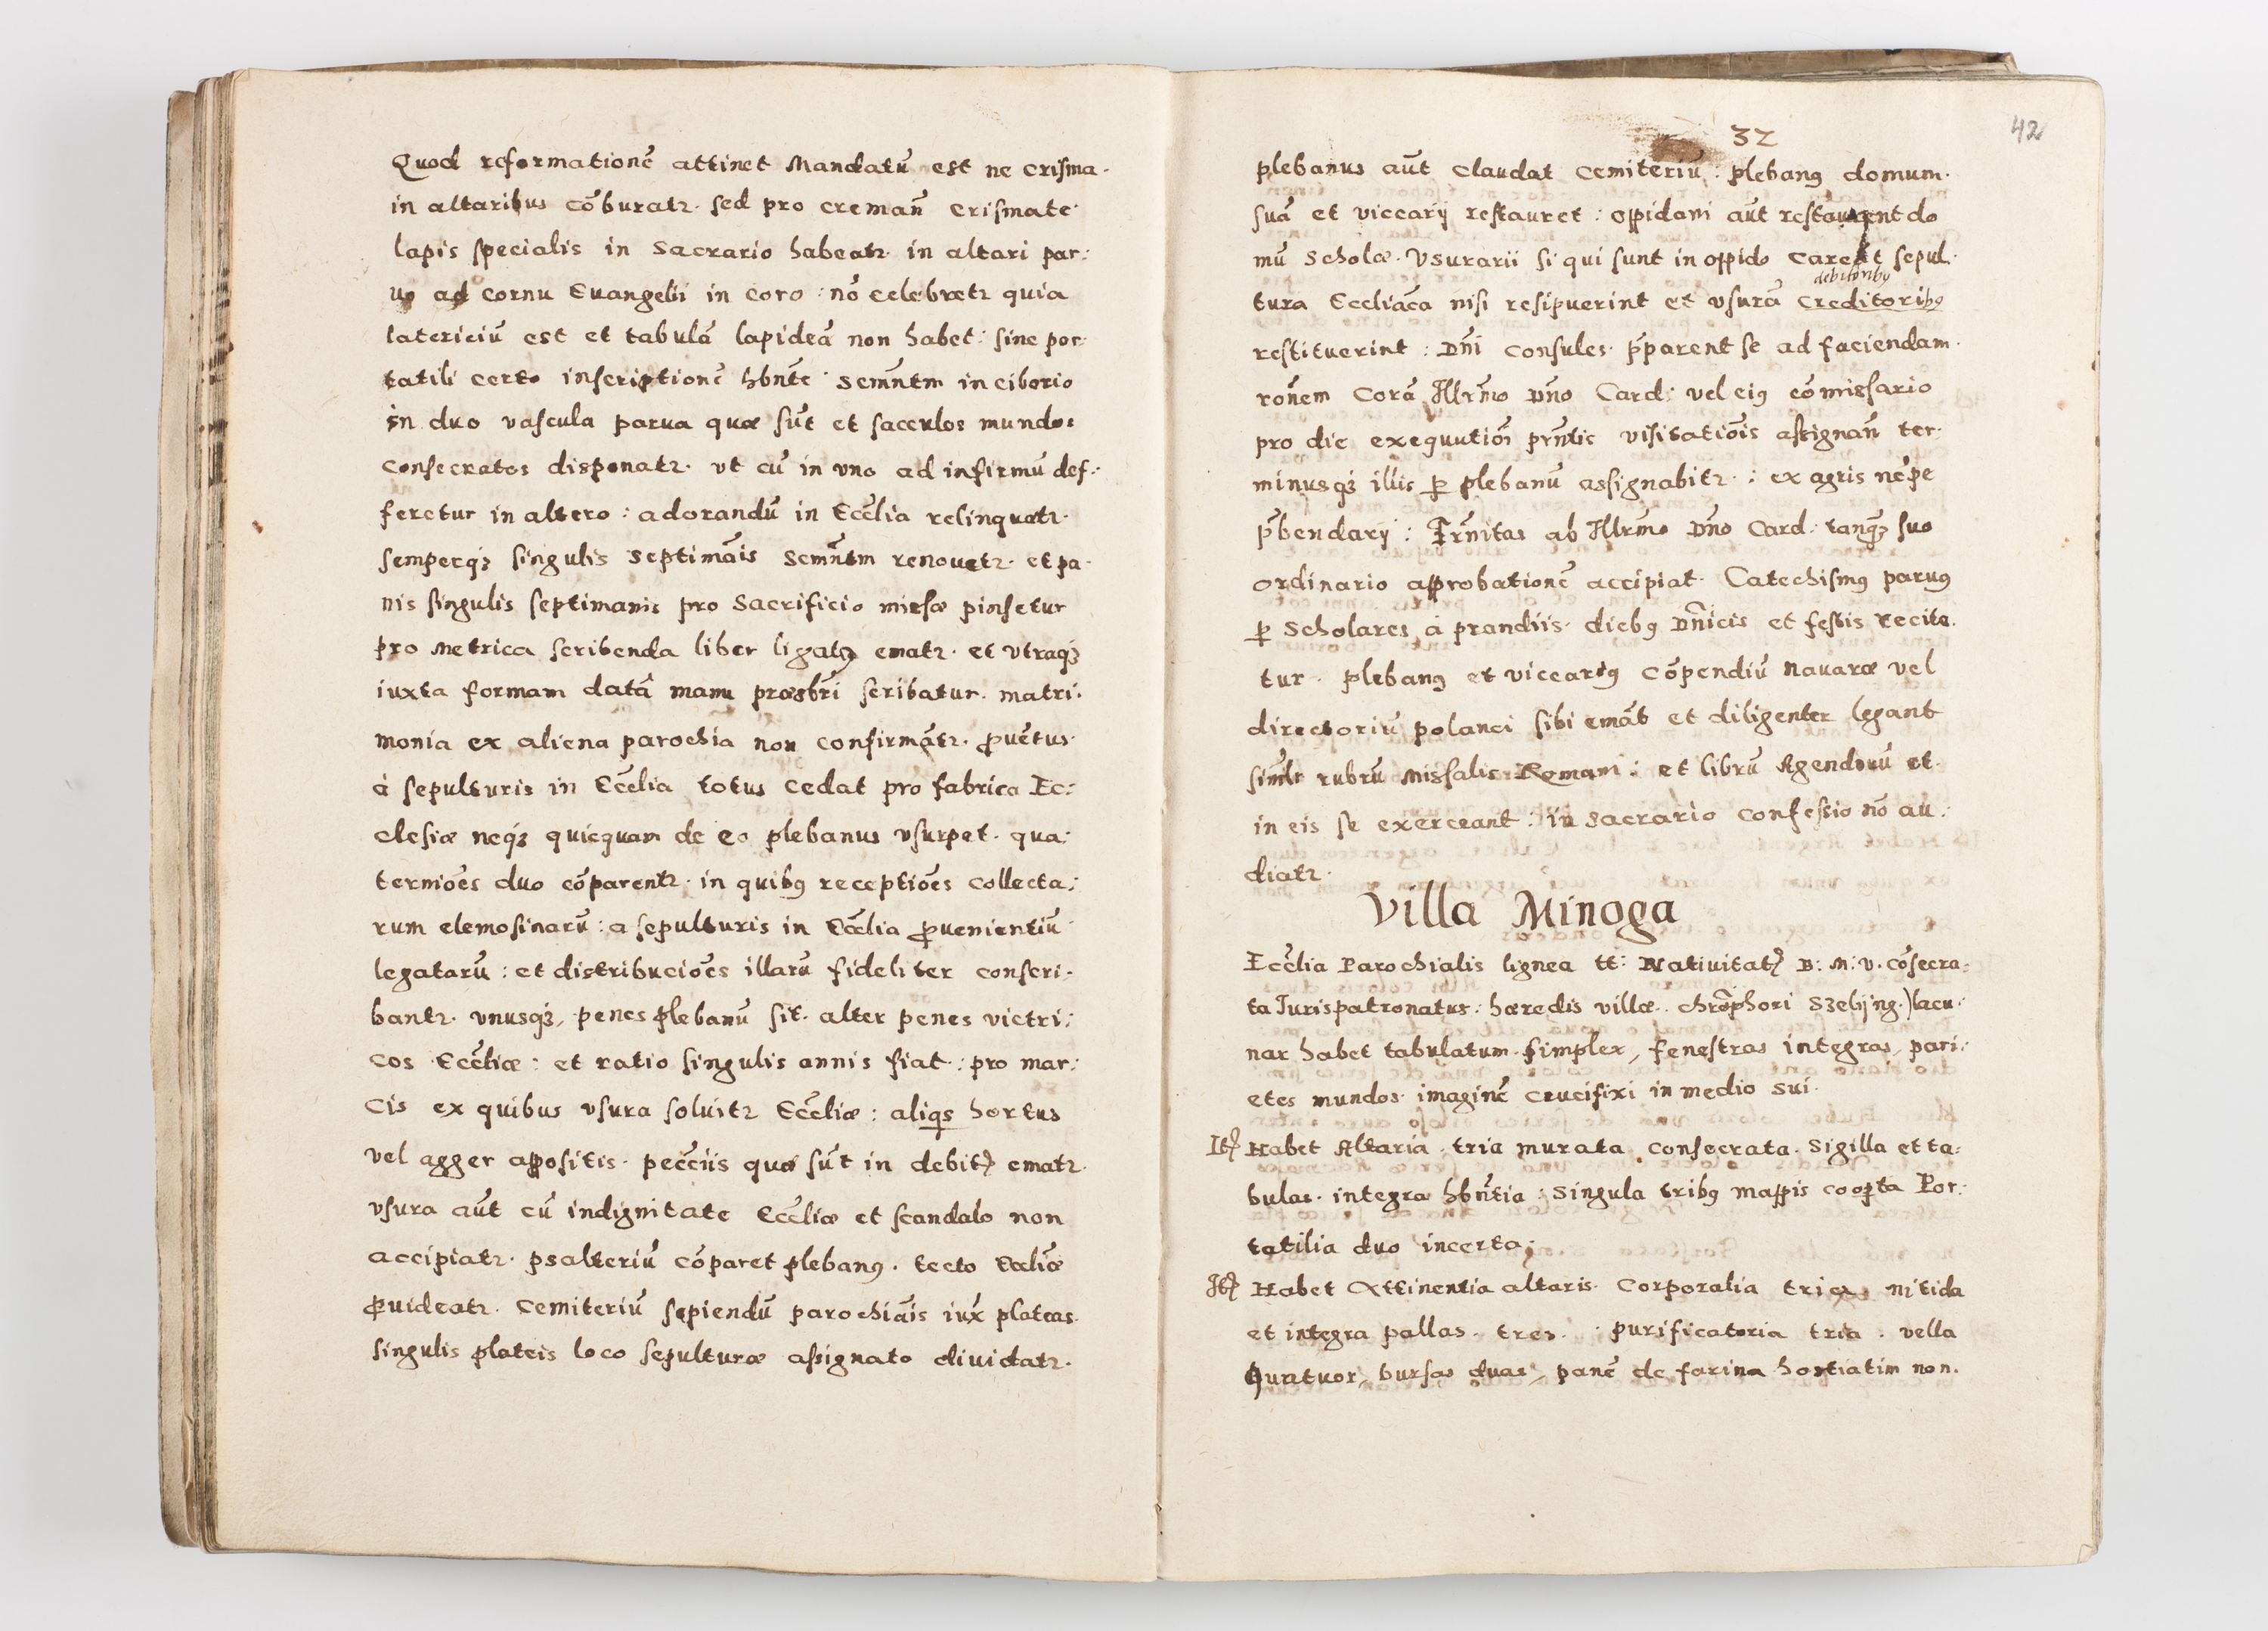 Quod reformationē attinet Mandatū est ne crisma.
in altaribus cōburatr. sed pro cremañ crismate
lapis specialis in Sacrario habeatr. in altari par:
uo ad cornu Euangelii in coro: nō celebretr quia
latericiū est et tabulā lapideā non habet: sine por:
tatili certo inscriptionē hbnt̄e Semñtm in ciborio
in duo vascula parua quæ sūt et sacculos mundos
consecratos disponatr. vt cū in vno ad infirmū def:
feretur in altero: adorandū in Eccl̄ia relinquatr.
semperq₃ singulis septimāis Semñtm renouetr. et pa.
nis singulis septimanis pro Sacrificio missæ pinsetur
pro metrica scribenda liber ligatꝰ ematr. et vtraq₃
iuxta formam datā manu præsbr̄i scribatur. matri.
monia ex aliena parochia non confirmātr. ꝓuētus.
à sepulturis in Eccl̄ia totus cedat pro fabrica Ec:
clesiæ neq₃ quicquam de eo plebanus vsurpet. qua:
terniōes duo cōparentr. in quibꝰ receptiōes collecta:
rum elemosinarū: a sepulturis in Eccl̄ia ꝓuenientiū
legatarū: et distribuciōes illarū fideliter conscri.
bantr. vnusq₃, penes plebanū sit. alter penes victri:
cos Eccl̄iæ: et ratio singulis annis fiat: pro mar:
cis ex quibus vsura soluitr Eccl̄iæ: aliqs hortus
vel agger appositis. pecc̄iis quæ sūt in debitꝭ ematr.
vsura aūt cū indignitate Eccl̄iæ et scandalo non
accipiatr. psalteriū cōparet plebanꝰ. tecto Eccl̄iæ
ꝓuideatr. Cemiteriū sepiendū parochiāis iux̄ plateas.
singulis plateis loco sepulturæ assignato diuidatr.
32
42
plebanus aūt claudat cemiteriū: plebanꝰ domum.
suā et viccarij restauret: oppidani aūt restaurent do
mū Scholæ. Vsurarii si qui sunt in oppido careāt sepul.
debitoribꝰ
tura Eccliāca nisi resipuerint et vsurā creditoribꝰ
restituerint: Dn̄i consules. p̄parent se ad faciendam.
rōnem Corā Illrm̄o Dn̄o Card: vel eiꝰ cōmissario
pro die exequutiōi prn̄tis visitatiōis assignañ ter:
minusq₃ illis ꝑ plebanū assignabitr.: ex agris nēpe
p̄bendarij: Frn̄itas ab Illrm̄o Dn̄o Card. tanq₃ suo
ordinario approbationē accipiat. Catechismꝰ paruꝰ
ꝑ Scholares à prandiis. diebꝰ Dn̄icis et festis recita.
tur. plebanꝰ et viccariꝰ cōpendiū nauaræ vel
directoriū polanci sibi emāt et diligenter legant
simlr̄ rubrū Missalis Romani: et librū Agendorū et
in eis se exerceant: in sacrario confessio nō au:
diatr.
Villa Minoga
Eccl̄ia Parochialis lignea tt: Natiuitatꝭ B: M: V. cōsecra:
ta Jurispatronatus: hæredis villæ. chrōphori Szelijng.) lacu:
nar habet tabulatum. simplex, fenestras integras, pari:
etes mundos. imaginē crucifixi in medio sui.
Itꝭ Habet Altaria. tria murata consecrata. Sigilla et ta:
bulas. integra hbn̄tia: Singula tribꝰ mappis cooꝑta Por:
tatilia duo incerta;
Itꝭ Habet Attinentia altaris. Corporalia tria, nitida
et integra pallas. tres. purificatoria tria. vella
Quatuor, bursas duas, panē de farina hostiatim non.